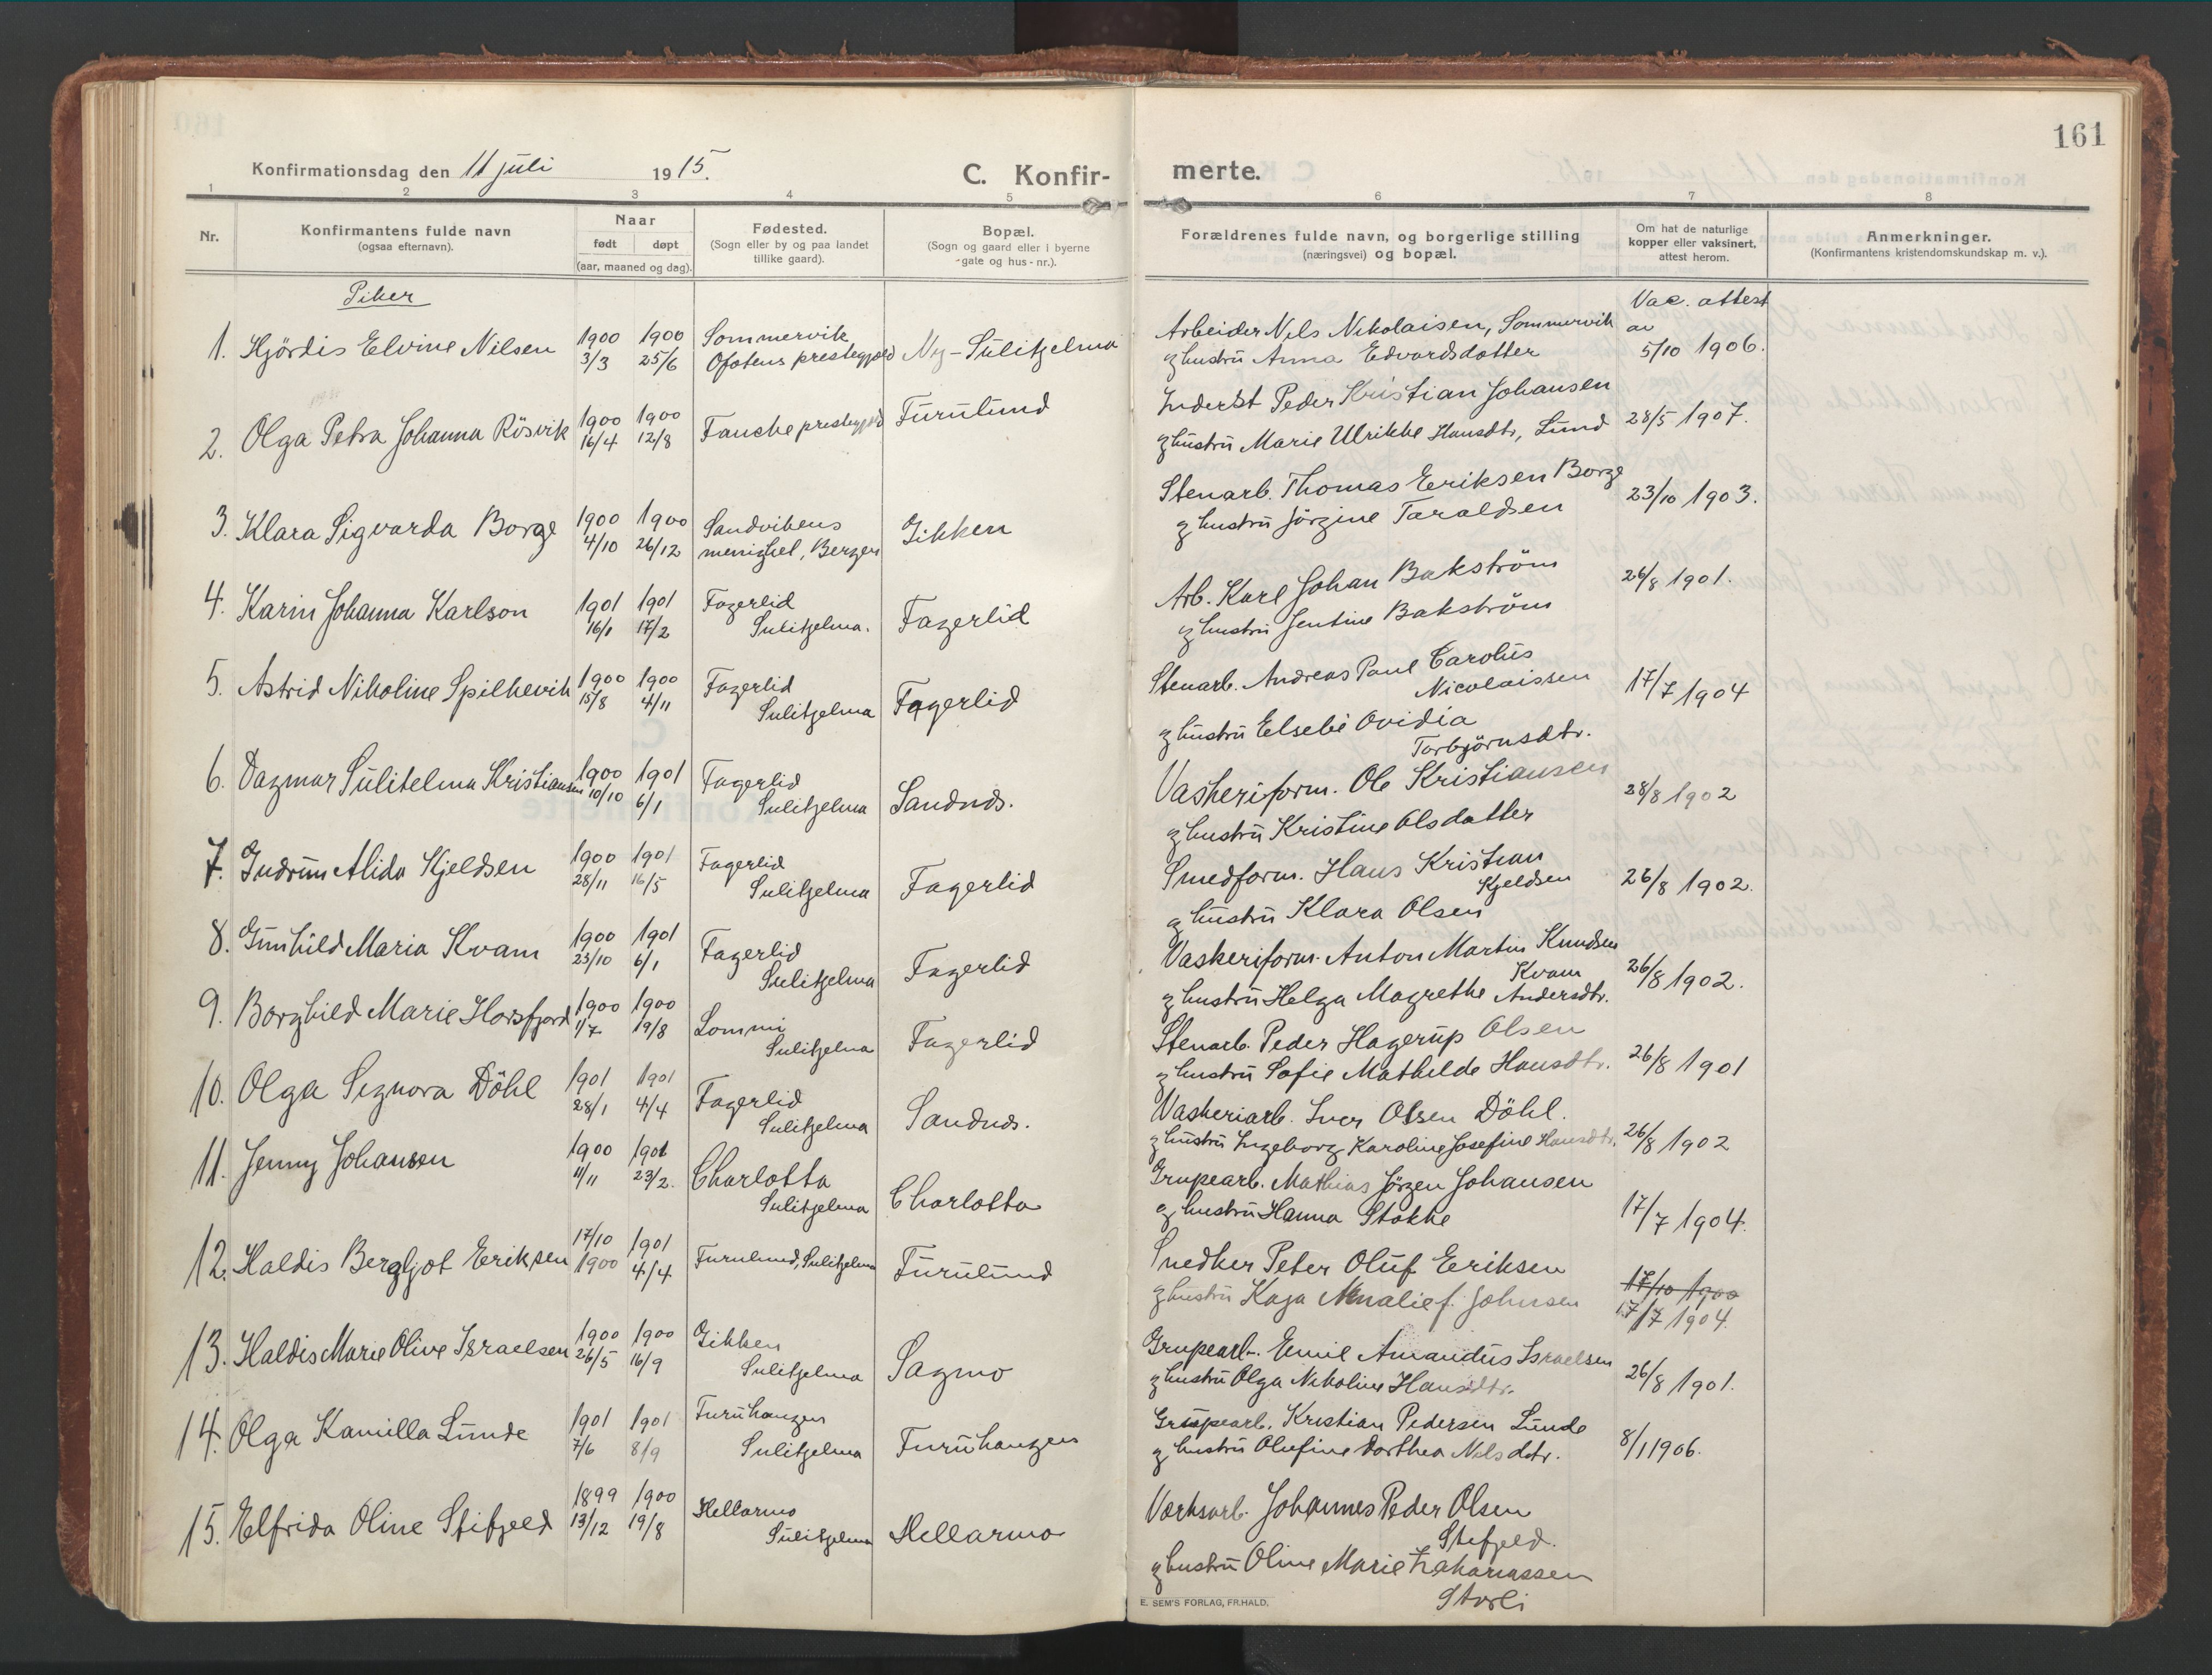 161
Konfirmationsdag den 11 juli 1915.
C. Konfir-
merte.
1 2 3 4 5 6 7 8
Nr.
Konfirmantens fulde navn
(ogsaa efternavn).
Naar
født døpt
(aar, maaned og dag).
Fødested.
(Sogn eller by og paa landet
tillike gaard).
Bopæl.
(Sogn og gaard eller i byerne
gate og hus-nr.).
Forældrenes fulde navn, og borgerlige stilling
(næringsvei) og bopæl.
Om hat de naturlige
kopper eller vaksinert,
attest herom.
Anmerkninger.
(Konfirmantens kristendomskundskap m. v.).
Piker
Vac. attest
av
1. Hjördis Elvine Nilsen 1900 3/3 1900 25/6 Sommervik
Ofotens prestegjeld Ny-Sulitjelma
Arbeider Nils Nikolaisen, Sommervik
g hustru Anna Edvardsdatter 5/10 1906.
2. Olga Petra Johanna Rösvik 1900 16/4 1900 12/8 Fauske prestegjeld Furulund
Inderst Peder Kristian Johansen
g hustru Marie Ulrikke Hansdtr, Lund 28/5 1907.
3. Klara Sigvarda Borge 1900 4/10 1900 26/12 Sandvikens
menighet, Bergen Gikken
Stenarb. Thomas Eeriksen Borge
g hustru Jörgine Taraldsen 23/10 1903.
4. Karin Johanna Karlson 1901 16/1 1901 17/2 Fagerlid
Sulitjelma. Fagerlid
Arb. Karl Johan Bakström
g hustru Jentine Bakström 26/8 1901.
5. Astrid Nikoline Spilkevik 1900 15/8 1900 4/11 Fagerlid
Sulitjelma Fagerlid
Stenarb. Andreas Paul Carolus
Nicolaissen
g hustru Elsebé Ovidia
Torbjörnsdtr. 17/7 1904
6. Dagmar Sulitelma Kristiansen 1900 10/10 1901 6/1 Fagerlid
Sulitjelma Sandnds.
Vaskeriform. Ole Kristiansen
g hustru Kristine Olsdatter 28/8 1902
7. Gudrun Alida Kjeldsen 1900 28/11 1901 16/5 Fagerlid
Sulitjelma Fagerlid
Smedform. Hans Kristian
Kjeldsen
g hustru Klara Olsen 26/8 1902.
8. Gunhild Maria Kvam 1900 23/10 1901 6/1 Fagerlid
Sulitjelma Fagerlid
Vaskeriform. Anton Martin Knudsen
Kvam
g hustru Helga Magrethe Andersdtr. 26/8 1902.
9. Borghild Marie Horsfjord 1900 1/7 1900 19/8 Lommi
Sulitjelma Fagerlid
Stenarb. Peder Hagerup Olsen
g hustru Sofie Mathilde Hansdtr. 26/8 1901
10. Olga Signora Döhl 1901 28/1 1901 4/4 Fagerlid
Sulitjelma Sandnds.
Vaskeriarb. Iver Olsen Döhl.
g hustru Ingeborg Karoline Josefine Hansdtr. 26/8 1902
11. Jenny Johansen 1900 11/11 1901 23/2. Charlotta
Sulitjelma Charlotta
Grupearb. Mathias Jörgen Johansen
g hustru Hanna Stokke 17/7 1904.
12. Haldis Bergljot Eeriksen 17/10 1900 1901 4/4 Furulund, Sulitjelma Furulund
Snedker Peter Oluf Eeriksen
g hustru Kaja Johnsen
17/10 1900
17/7 1904.
13. Haldis Marie Olive Israelsen 1900 26/5 1900 16/9 Gikken
Sulitjelma Sagmo
Grupearb. Emil Amandus Israelsen
g hustru Olga Nikoline Hansdtr. 26/8 1901.
14. Olga Kamilla Lunde 1901 7/6 1901 8/9 Furuhaugen
Sulitjelma Furuhaugen
Grupearb. Kristian Pedersen Lunde
g hustru Olufine Dorthea Nilsdatr. 8/1 1906.
15. Elfrida Oline Stifjeld 1899 13/12 1900 19/8 Hellarmo
Sulitjelma Hellarmo
Verksarb. Johannes Peder Olsen
Stifjeld.
g hustru Oline Marie Zakariassen
Storli
E. SEM'S FORLAG, FR.HALD.